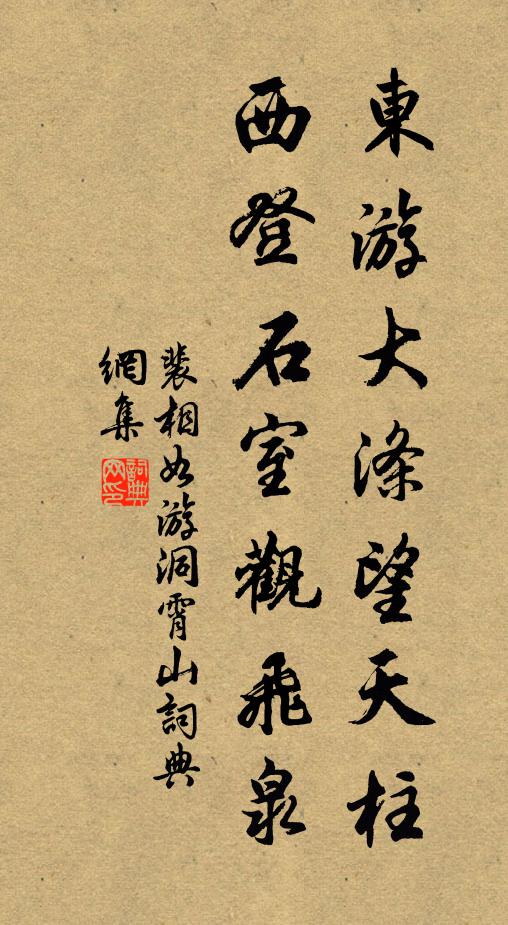 東游大滌望天柱
西登石室觀飛泉
裴相如游洞霄山詞典
網集
詞典
网印